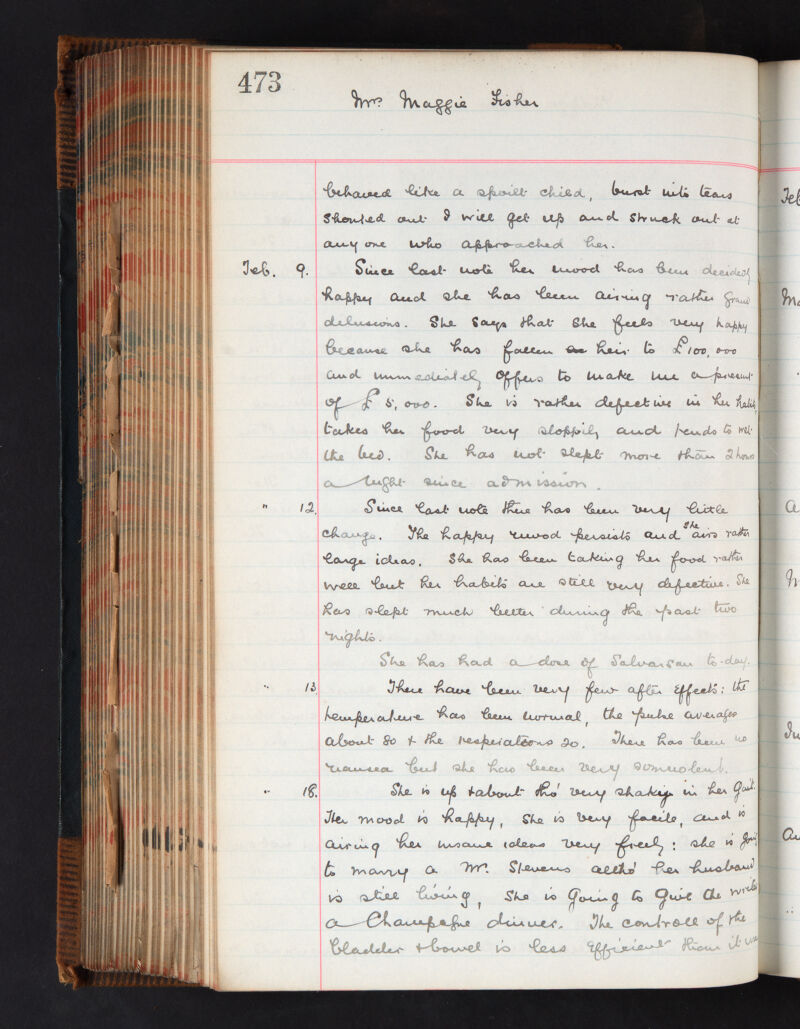 473
Mrs. Maggie Fisher
behaved like a spoilt child, burst into tears
shouted out I will get up and struck out at
any one who approached her.
Feb. 9. Since last note her mood has been decidedly
happy and she has been airing rather grand
delusions. She says that she feels very happy
because she has fallen heir to £100,000
and immediately offers to make me a present
of £5,000. She is rather defective in her habits,
takes her food very sloppily and tends to wet
the bed. She has not slept more than 2 hours
a night since admission.
" 12. Since last note there has been very little
change. The happy mood persists and she airs rather
large ideas. She has been taking her food rather
well but her habits are still very defective. She
has slept much better during the past two
nights.
She has had a dose of Salvarsan to-day.
" 13 There have been very few after effects: the
temperature has been normal, the pulse averages
about 80 + the respirations 20. There has been no
nausea but she has been very somnolent.
" 18. She is up + about tho' very shaky in her gait.
Her mood is happy, she is very facile, and is
airing her insane ideas very freely: she is going
to marry a Mr. Stevens altho' her husband
is still living, she is going to give the
a Champagne dinner. The controll of the
bladder + bowel is less efficient than it was
Feb